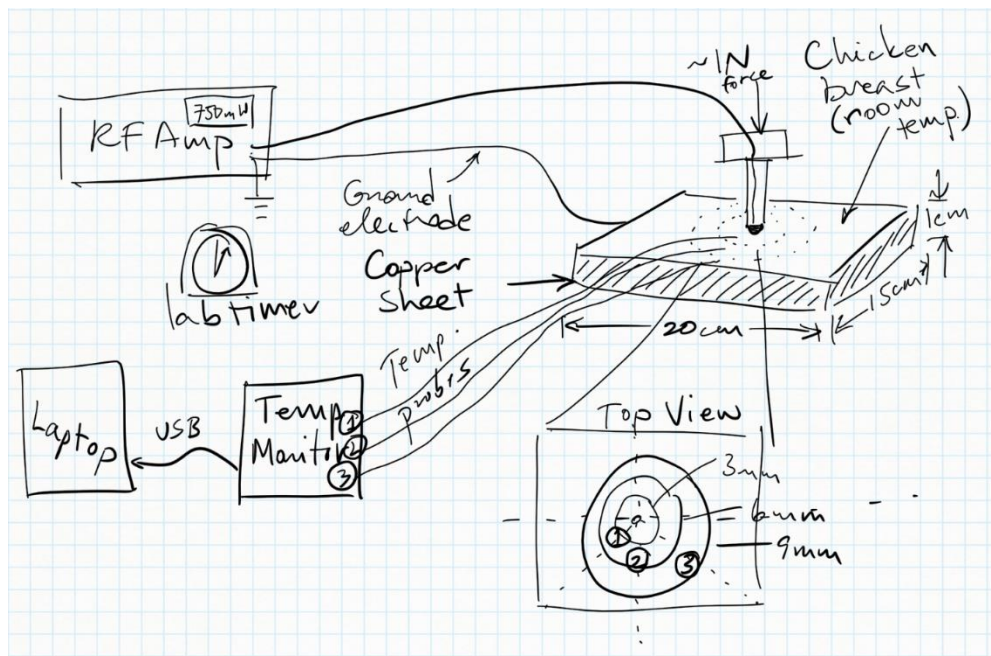 750mW
RF Amp
~1N
force
Chicken
breast
(room
temp.)
Ground
electrode
Copper
Sheet
1cm
15cm
20cm
lab timer
Temp.
probes
Laptop
USB
Temp
Monitor
1
2
3
Top View
3mm
6mm
9mm
a
1
2
3